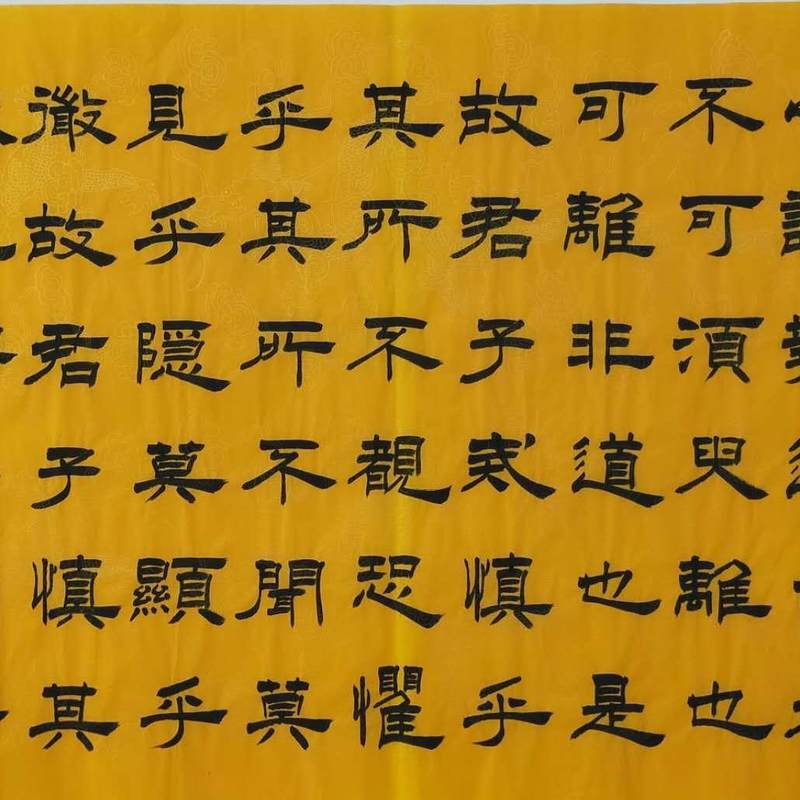 不可湏臾離也
可離非道也是
故君子戒慎乎
其所不覩恐懼
乎其所不聞莫
見乎隠莫顯乎
微故君子慎其